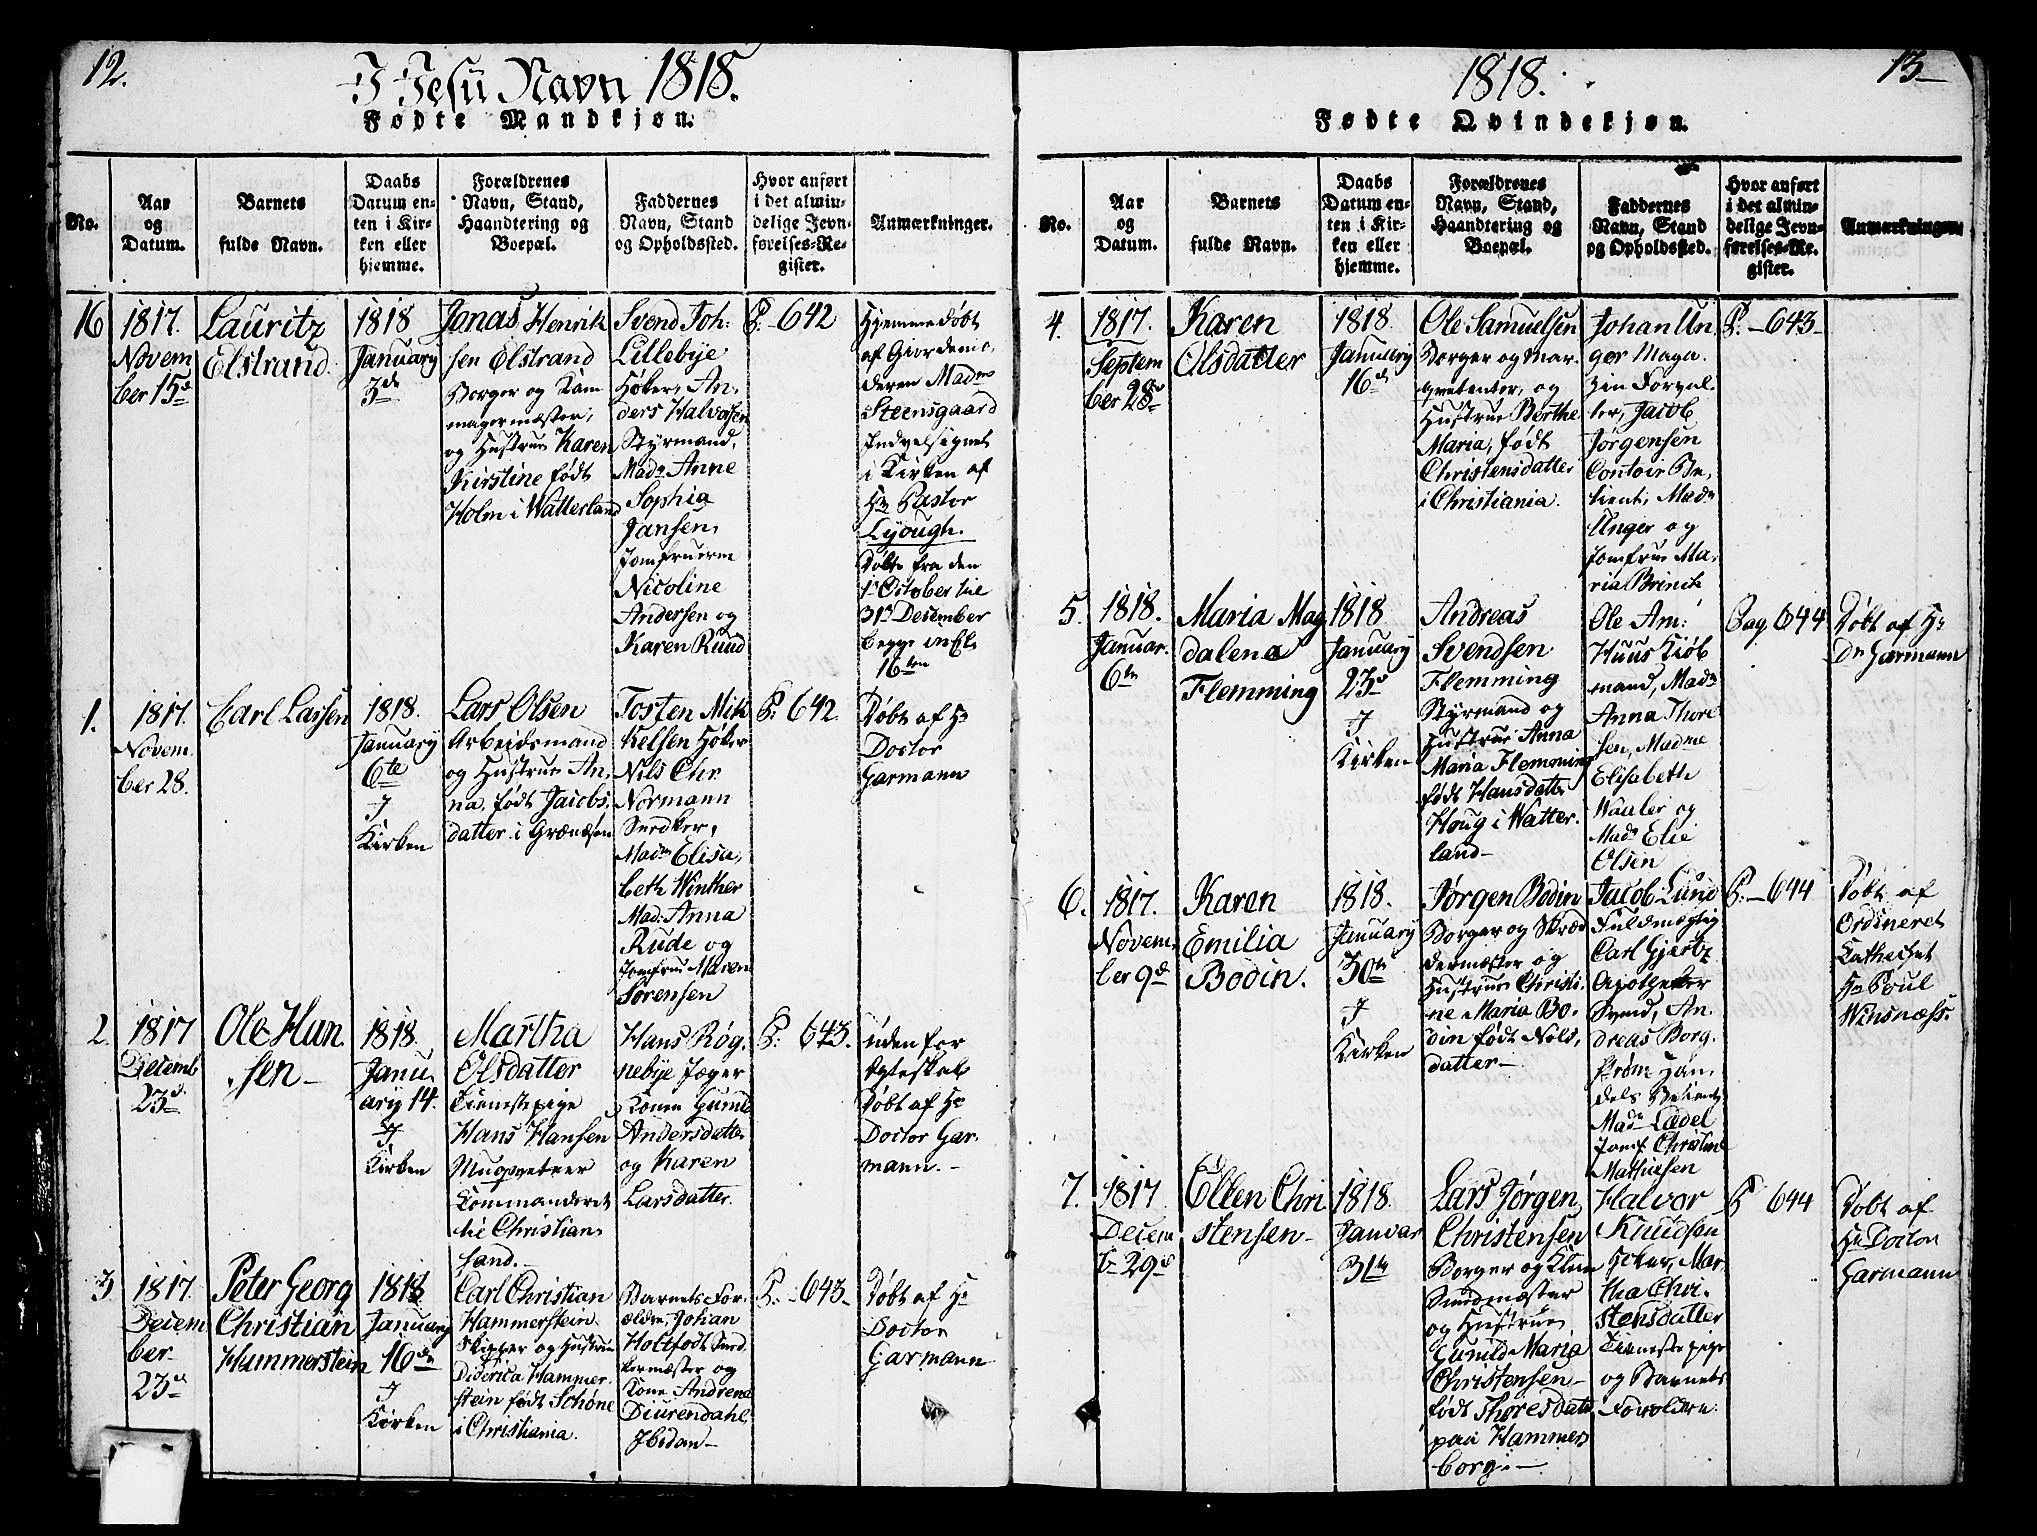 12.
I Jesu Navn 1818.
Fødte Mandkjøn.
No.
Aar
og
Datum.
Barnets
fulde Navn.
Daabs
Datum en-
ten i Kir-
ken eller
hjemme.
Forældrenes
Navn, Stand,
Haandtering og
Boepæl.
Faddernes
Navn, Stand
og Opholdssted.
Hvor anført
i det almin-
delige Jevn-
førelses-Re-
gister.
Anmærkninger.
16
1817.
Novem
ber 15d
Lauritz
Elstrand.
1818
January
3de
Jonas Henrik
sen Elstrand
Borger og Kam
magermester,
og Hustrue Karen
Kirstine født
Holm i Watterland
Svend Joh:
Lillebye
Høker, An,
ders Halvorsen
Styrmand,
Mad. Anne
Sophia
Jansen,
Jomfruerne
Nicoline
Andersen og
Karen Ruud
P. 642
Hjemmedøbt
af Giordemo,
deren Madme
Steensgaard
Indvelsignet
i Kirken af
Hr Pastor
Lyough.
Døbte fra den
1 October til
31 December
begge incl.
16ten
1.
1817.
Novem
ber 28.
Carl Larsen
1818.
January
6te
I
Kirken
Lars Olsen
Arbeidsmand
og Hustrue An,
na, født Jacobs,
datter i Grændsen
Tosten Mik
kelsen Høker
Nils Chr
Normann
Snedker,
Madm Elisa,
beth Winther
Mad: Anna
Rude og
Jomfrue Maren
Sørensen
P. 642.
Døbt af Hr
Doctor
Garmann
2.
1817
Decemb
23d
Ole Han
sen
1818.
Janu,
ary 14.
I
Kirken
Martha
Olsdatter
Tienestepige
Hans Hansen
Musqveteer
Kommanderet
til Christian,
sand.
Hans Røg,
nebye Jæger
Konen Gunild
Andersdatter
og Karen
Larsdatter.
P. 643.
uden for
Ægteskab
Døbt af Hr
Doctor Gar,
mann.
3
1817.
Decem
ber
23d
Peter Georg
Christian
Hammerstein
1818
January
16de
I
Kirken
Carl Christian
Hammerstein
Skipper og Hustrue
Diderica Hammer,
stein født Schøne
i Christiania.
Barnets For,
ældre, Johan
Holtfodt Sned
kermester og
Kone Andrena
Diurendahl
Ibidan
P. 643
Døbt af Hr
Doctor
Garmann
1818.
13
Fødte Qvindekjøn.
No.
Aar
og
Datum.
Barnets
fulde Navn.
Daabs
Datum en-
ten i Kir-
ken eller
hjemme.
Forældrenes
Navn, Stand,
Haandtering og
Boepæl.
Faddernes
Navn, Stand
og Opholdssted.
Hvor anført
i det almin-
delige Jevn-
førelses-Re-
gister.
Anmærkninger.
4.
1817.
Septem
ber 28
Karen
Olsdatter
1818.
January
16d
Ole Samuelsen
Borger og Mar,
qvetenter, og
Hustrue Berthe
Maria, født
Christensdatter
i Christiania.
Johan Un
ger Maga,
zin Forval,
ter, Jacob
Jørgensen
Contoir Be,
tient, Madm
Unger og
Jomfrue Ma,
ria Brinck
P. 643
5.
1818.
Januar.
6te
Maria Mag
dalena
Flemming
1818
January
23d
I
Kirken
Andreas
Svendsen
Flemming
Styrmand og
Hustrue Anna
Maria Flemming
født Hansdatter
Houg i Watter,
land
Ole Am:
Huus Kiøb
mand, Madm
Anna Thore
sen, Madme
Elisabeth
Waaler og
Mad. Elie
Olsen
Pag 644
Døbt af Hr
Dr Garmann
6.
1817.
Novem,
ber 9d
Karen
Emilia
Bodin.
1818.
January
30te
I
Kirken
Jørgen Bodin
Borger og Skræd
dermester og
Hustrue Christi,
ne Maria Bo,
din født Nels,
datter
Jacob Lund
Fuldmægtig
Carl Gjertz
Apotheker
Svend, An,
dreas Borg,
strøm Han,
dels Betient
Mad.
Jomf. Christine
Mathiesen
P. 644
Døbt af
Ordineret
Kathechet
Hr Poul
Winsnæss.
7.
1817
Decem
br 29d
Ellen Chri
stensen
1818.
Januar
31te
Lars Jørgen
Christensen
Borger og Klein
Smedmester
og Hustrue
Gunild Maria
Christensen
født Thoresdatter
paa Hammers
borg
Halvor
Knudsen
Høker, Mar
tha Chri,
stensdatter
Tienestepige
og Barnets
Forældre.
P 644
Døbt af
Hr Doctor
Garmann